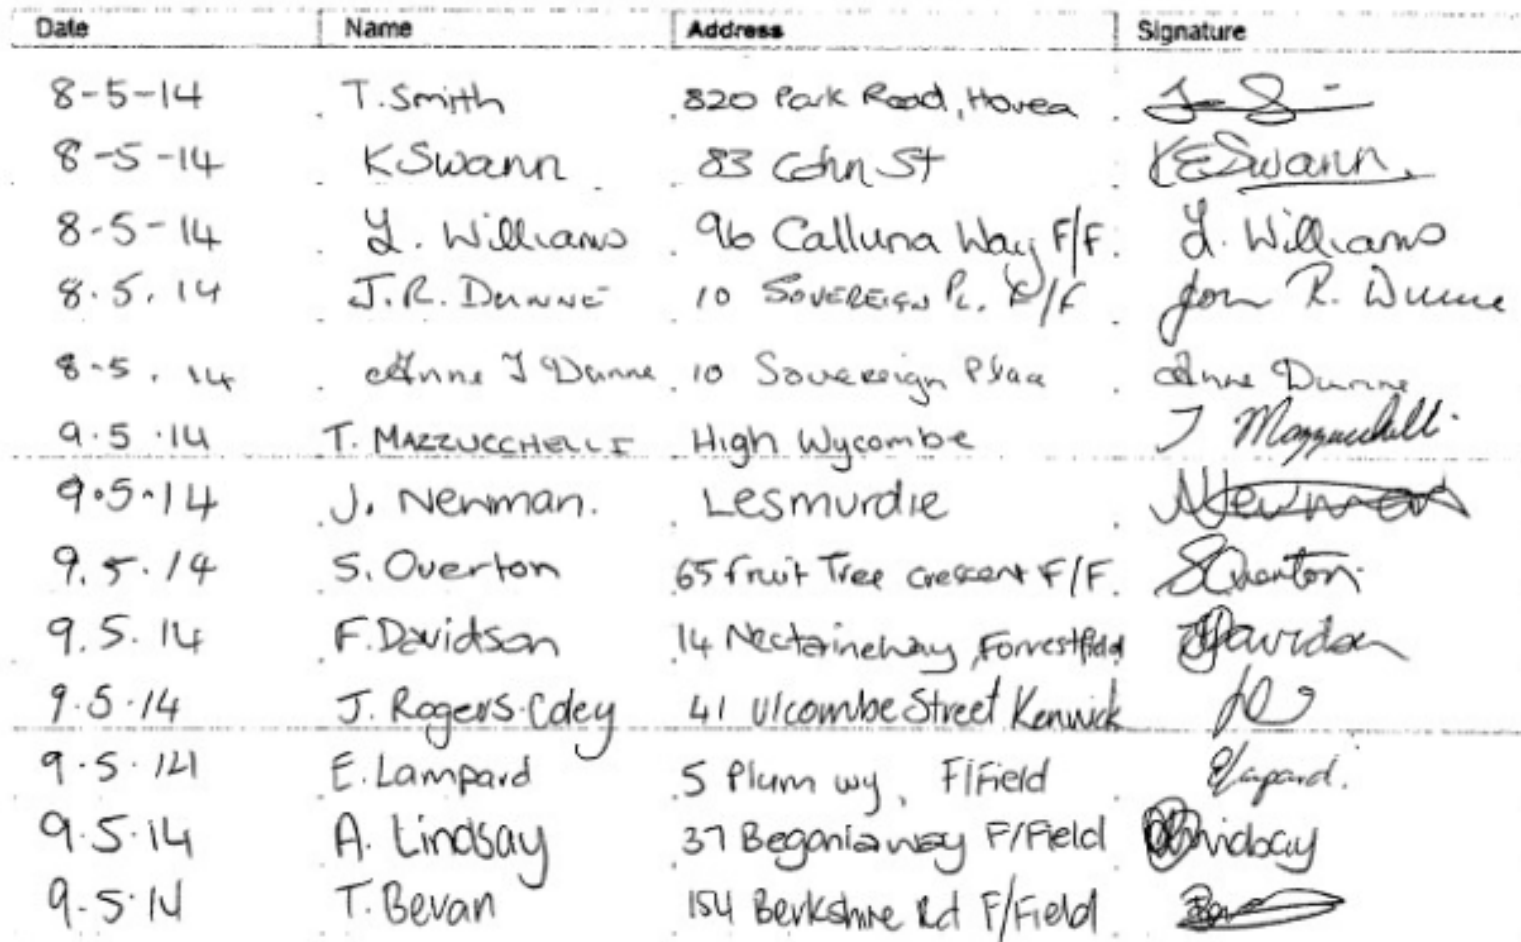 Date Name Address Signature
8-5-14 T. Smith 820 Park Road, Hovea
8-5-14 K Swann 83 St KESwann.
8-5-14 L. Williams 96 Calluna Way F/F. L. Williams
8.5.14 J.R. DUNNE 10 SOVEREIGN PL. F/F R. Dunne
8-5.14 Anne J Dunne 10 Sovereign Place Anne Dunne
9.5.14 T. MAZZUCCHELLI High Wycombe T Mazzucchelli
9.5.14 J. Newman. Lesmurdie Newman
9.5.14 S. Overton 65 fruit Tree crescent F/F. SOverton
9.5.14 F. Davidson 14 Nectarine Way, Forrestfield Davidson
9.5.14 J. Rogers-Coley 41 Ulcombe Street Kenwick
9.5.14 E. Lampard 5 Plum wy, F/Field ELampard.
9.5.14 A. Lindsay 37 Begonia way F/Field Lindsay
9.5.14 T. Bevan 154 Berkshire Rd F/Field